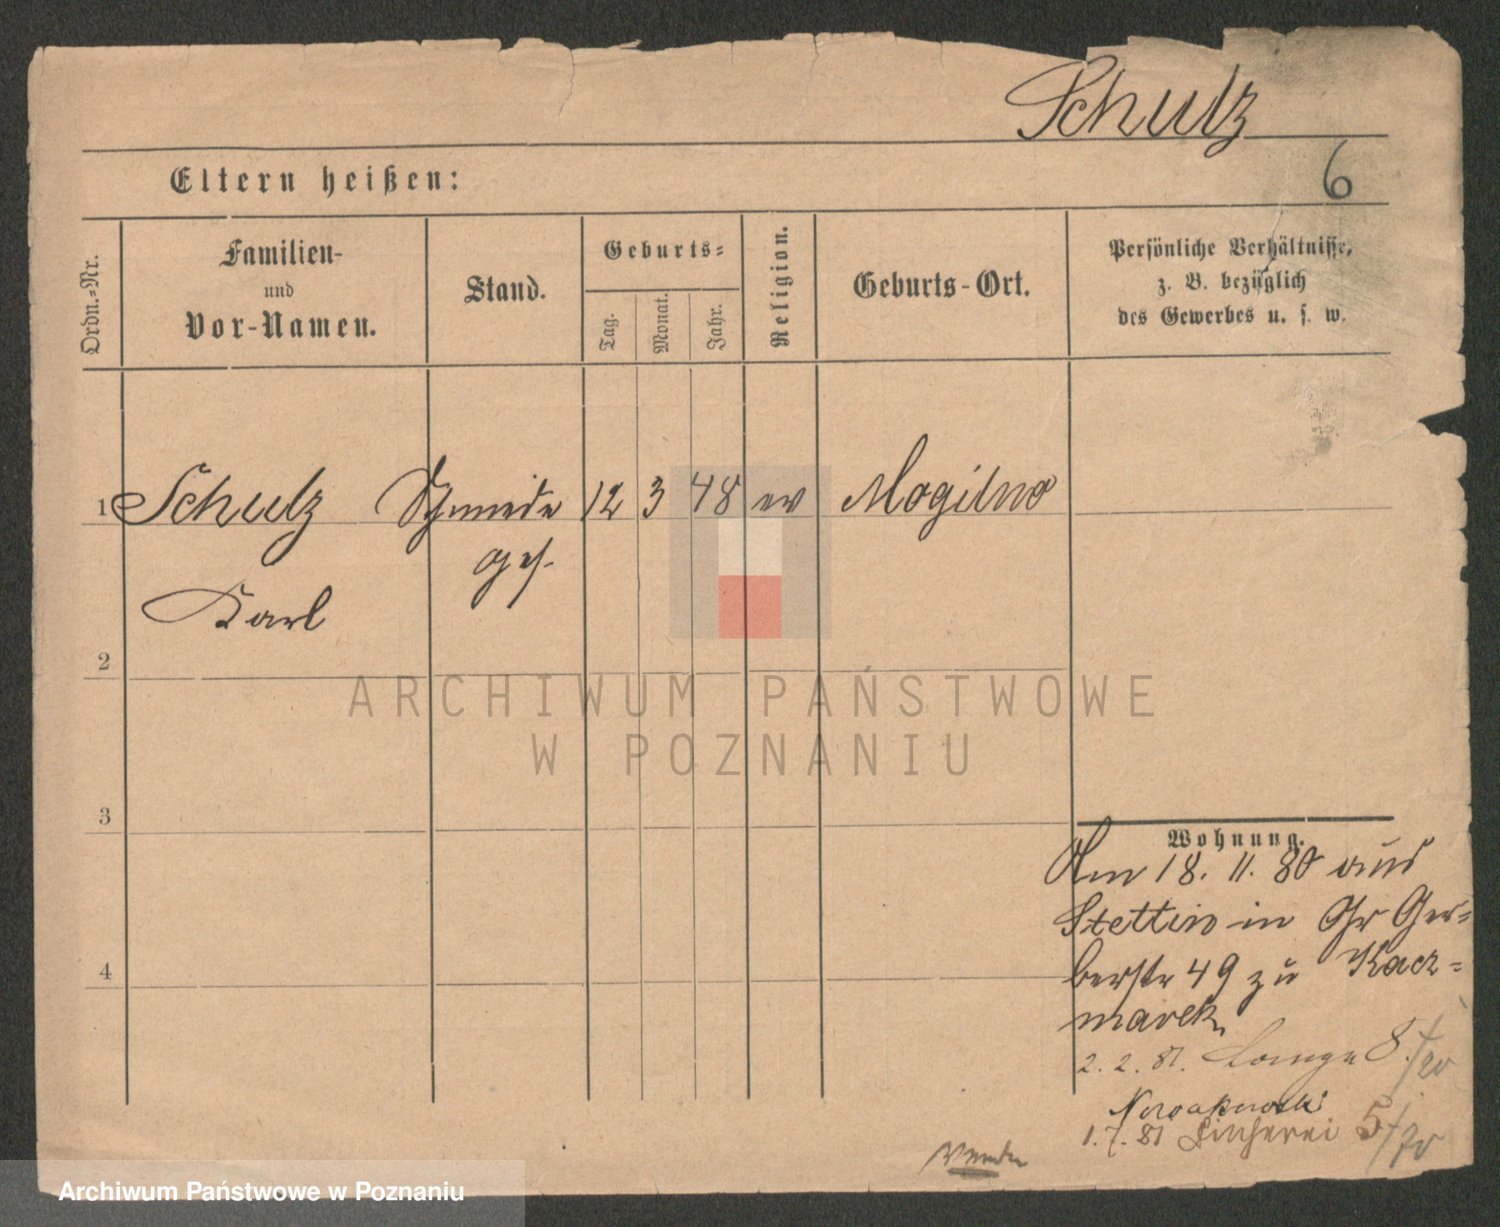 Schulz
6
Eltern heißen:
Ordn.-Nr.
Familien-
und
Vor-Namen.
Stand.
Geburts-
Tag.
Monat.
Jahr.
Religion.
Geburts-Ort.
Persönliche Verhältnisse,
z. B. bezüglich
des Gewerbes u. s. w.
1 Schulz Schmiede 12 3 48 ev Mogilno
ges.
Karl
2
3
4
Wohnung.
Am 18. 11. 80 aus
Stettin in Gr Ger=
berstr 49 zu Kacz=
marek
2. 2. 81. Lange 8./
Nowakowski
1. 7. 81 Fischerei 5/
Wende
ARCHIWUM PAŃSTWOWE
W POZNANIU
Archiwum Państwowe w Poznaniu